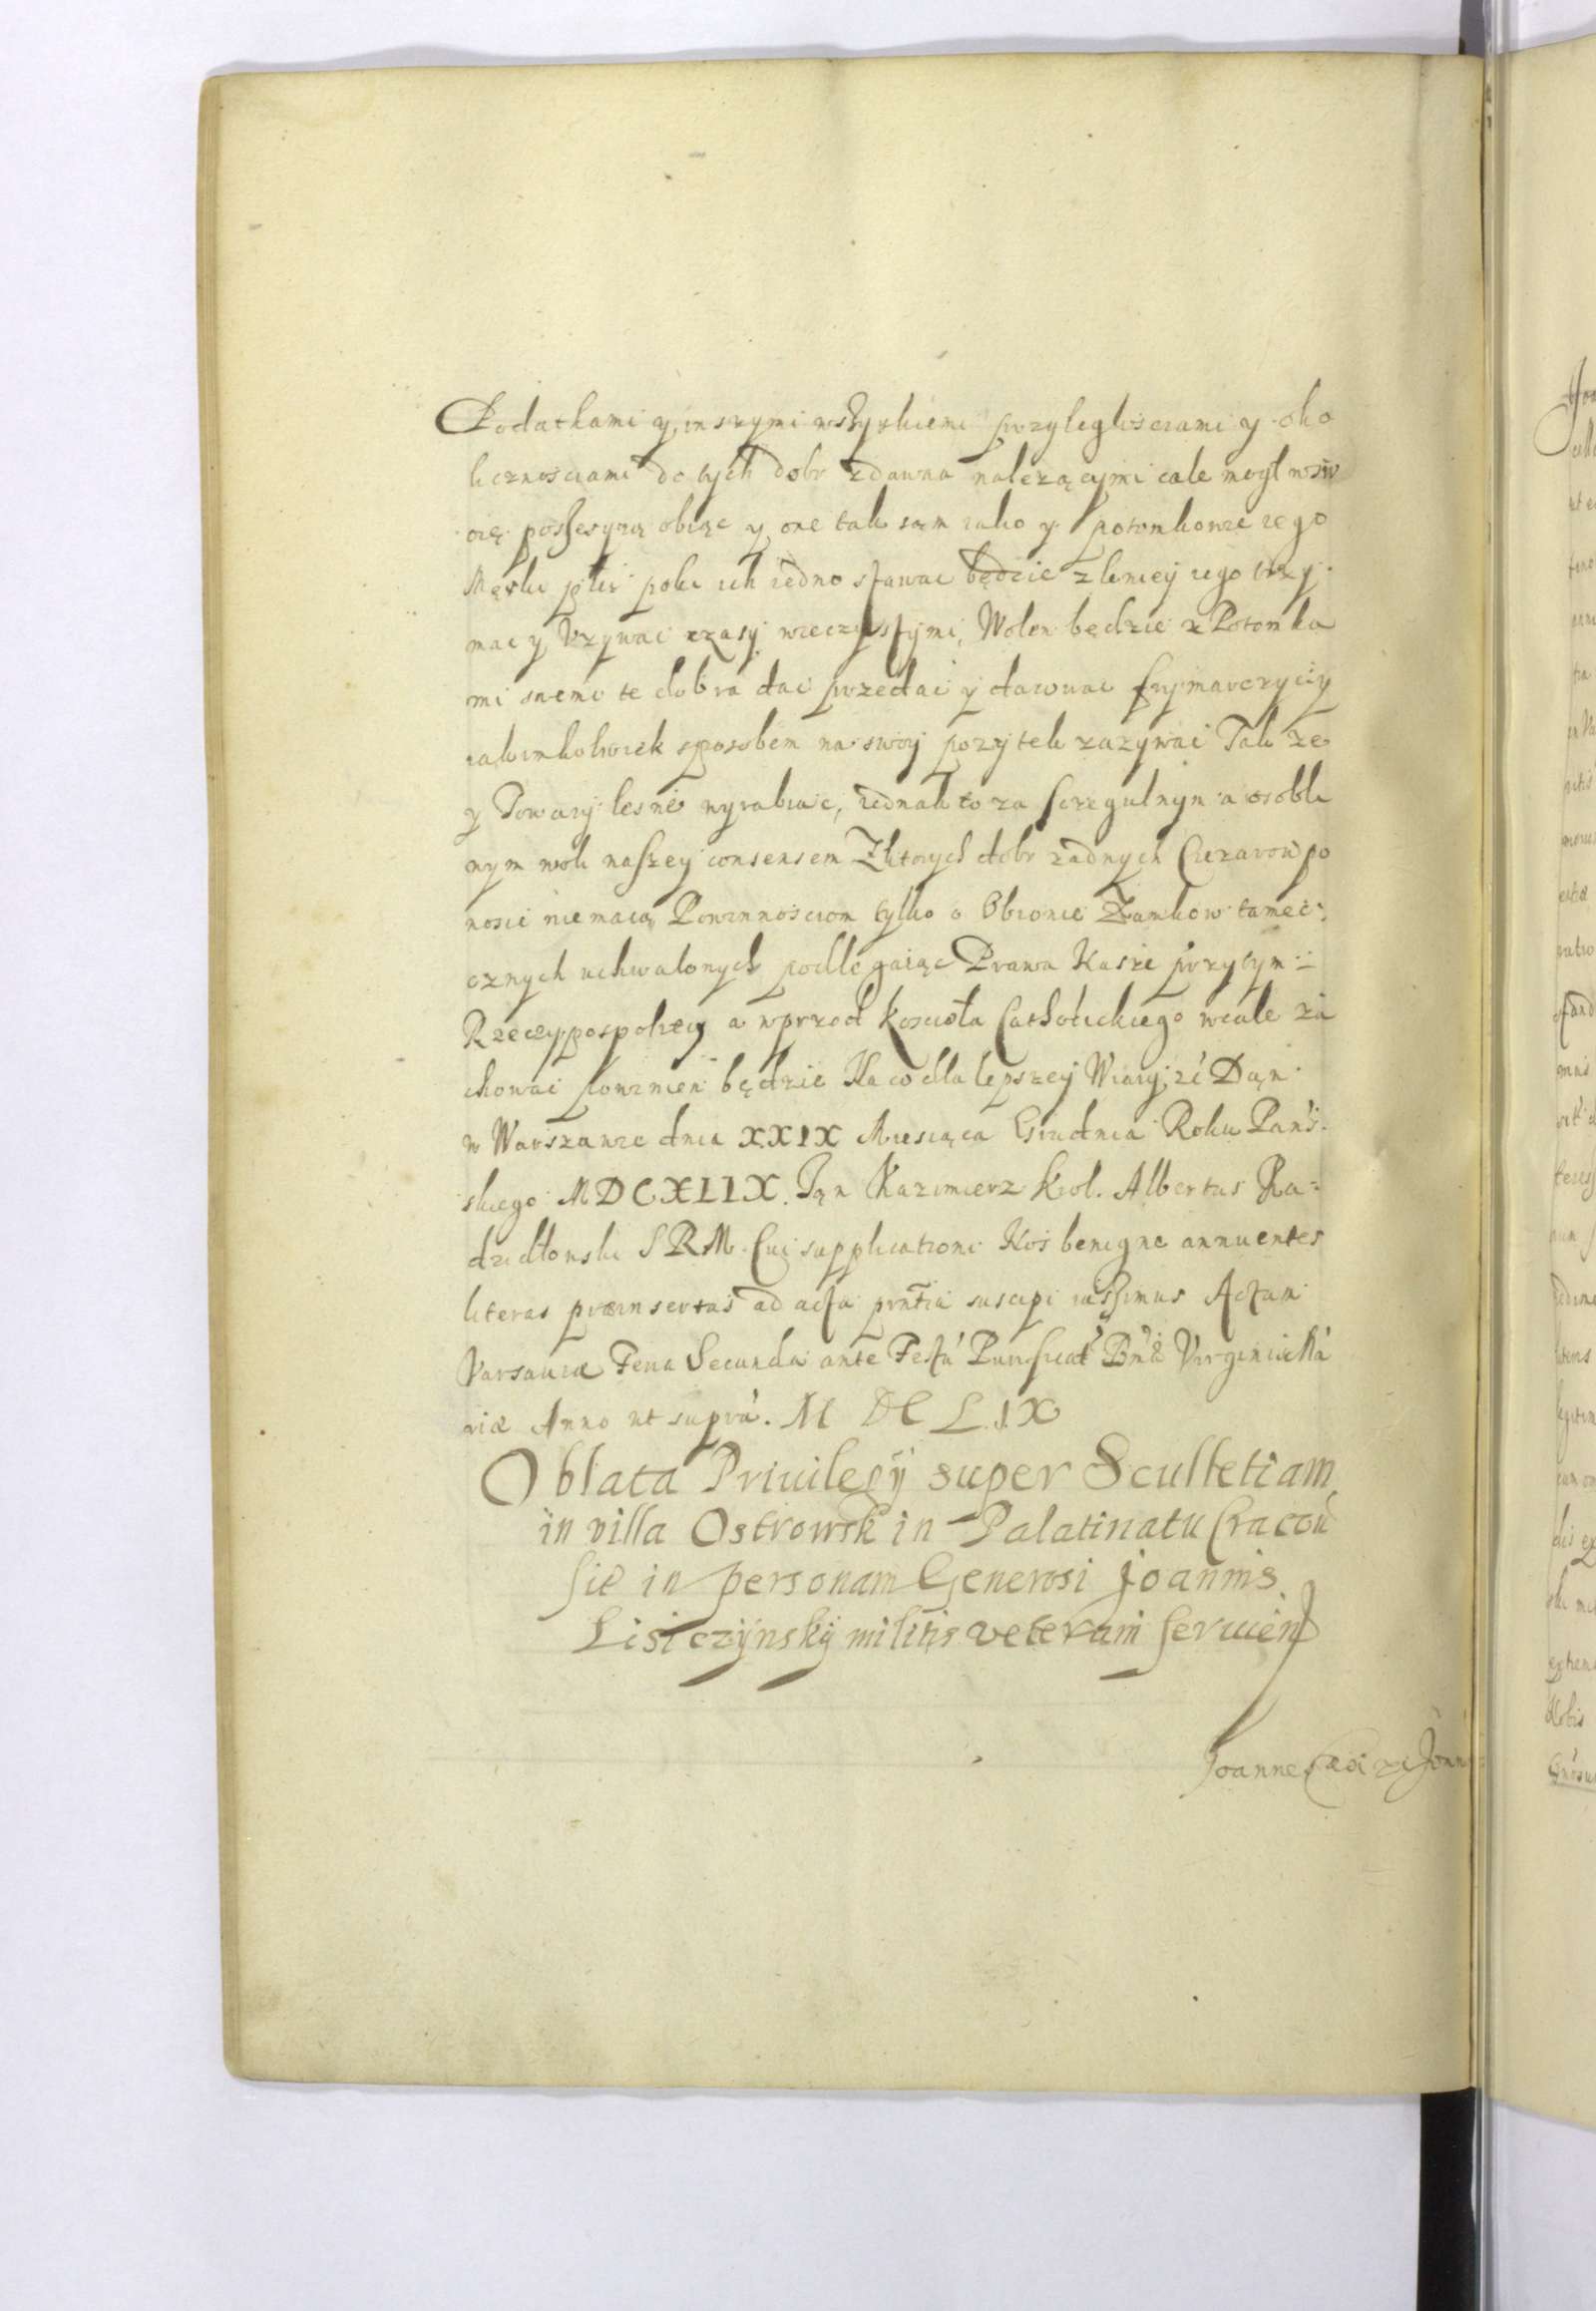 Podatkami y inszymi wszytkiemi przyległosciami y oko
licznosciami do tych dobr zdawna nalezącymi cale mogł wsw
oię possesyą obiąc y one tak sąm iako y potomkowie iego
Męskiey płci poki ich iedno stawac będzie zliniey iego trzy
mac y Vzywac czasy wieczystymi, Wolen będzie z Potomka
mi swemi te dobra dac przedac y darowac frymarczyc y
iakimkolwiek sposobem na swoy pozytek zazywac Tak ze
y Towary lesne wyrabiac, iednak to za sczegulnym a osobli
wym woli naszey consensem Zktorych dobr zadnych Ciezarow po
nosic nie maią Powinnosciom tylko o Obronie Zamkow tamec:
cznych uchwalonych podlegaiąc Prawa Nasze przytym :
Rzeczypospolitey a wprzod koscioła Catholickiego wcale za
chowac powinien będzie Na co dla lepszey Wiary, etc Dąn
w Warszawie dnia XXIX Miesiąca Grudnia Roku Pans
skiego MDCXLIX. Ian Kazimierz krol. Albertus Ra=
dzidłowski SRM. Cui supplicationi Nos benigne annuentes
literas præinsertas ad acta pñtia suscipi iussimus Actum
Varsauiæ Feria Secunda ante Festũ Purificat Bmæ Virginis Ma
riæ Anno ut suprà. M DC L IX
Oblata Priuilegÿ super Scultetiam
in villa Ostrowsk in Palatinatu Cracou
sie in personam Generosi Joannis
Lisiczÿnskÿ militis veterani seruien
Joannes Casi